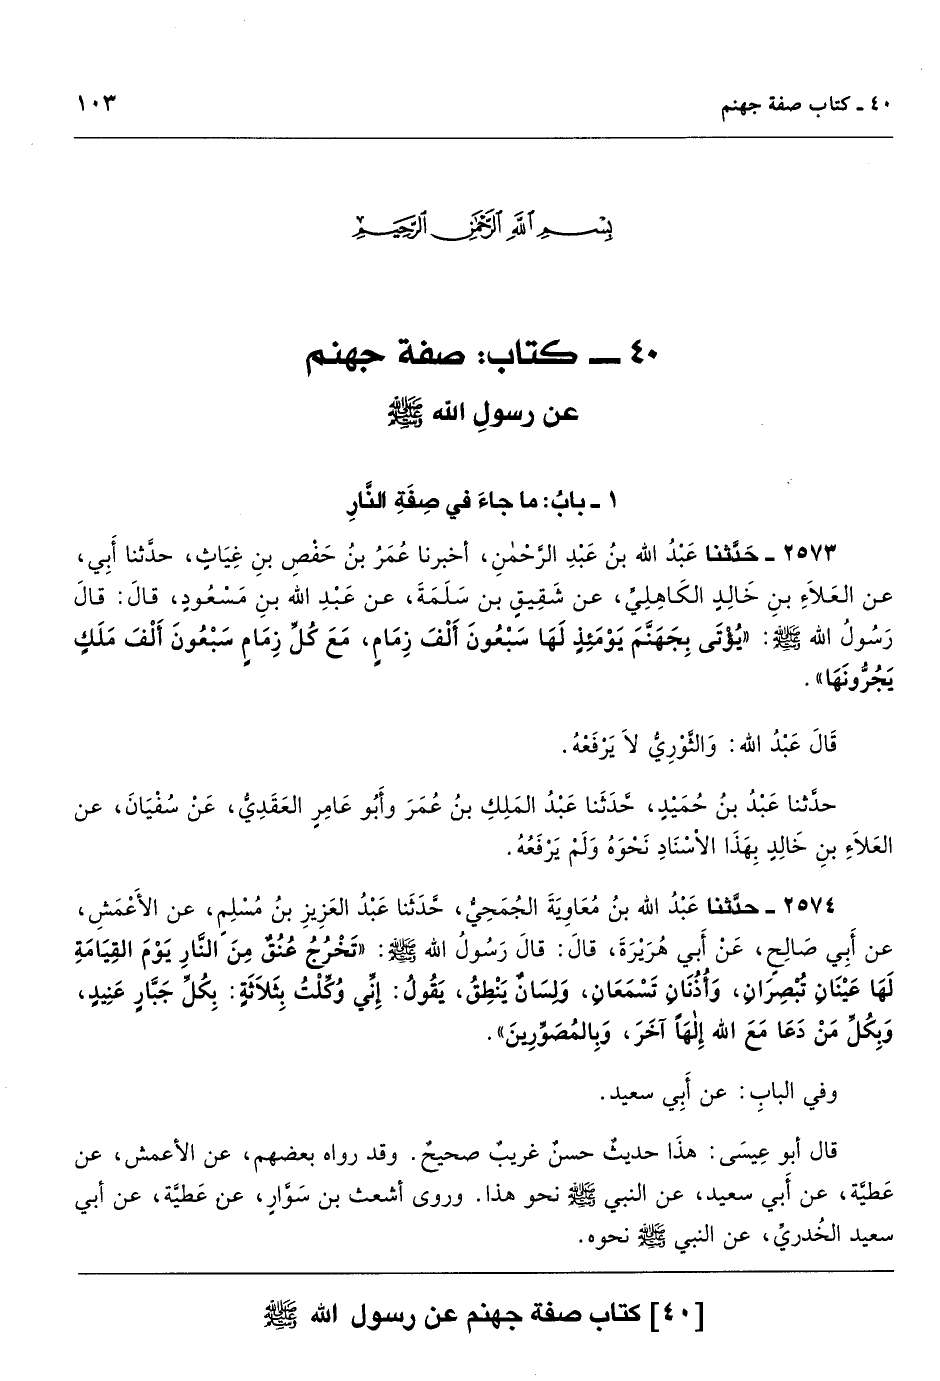 ٤٠ ـ كتاب صفة جهنم ١٠٣
بِسْمِ ٱللَّهِ ٱلرَّحْمَٰنِ ٱلرَّحِيمِ
٤٠ ـ كتاب: صفة جهنم
عن رسولِ الله ﷺ
١ ـ بابُ: ما جاءَ في صِفَةِ النَّارِ
٢٥٧٣ ـ حَدَّثنا عَبْدُ الله بنُ عَبْدِ الرَّحْمٰنِ، أخبرنا عُمَرُ بنُ حَفْصِ بنِ غِيَاثٍ، حدَّثنا أَبِي،
عن العَلاَءِ بنِ خَالِدٍ الكَاهِلِيِّ، عن شَقِيقِ بن سَلَمَةَ، عن عَبْدِ الله بنِ مَسْعُودٍ، قالَ: قالَ
رَسُولُ الله ﷺ: «يُؤْتَى بِجَهَنَّمَ يَوْمَئِذٍ لَهَا سَبْعُونَ أَلْفَ زِمَامٍ، مَعَ كُلِّ زِمَامٍ سَبْعُونَ أَلْفَ مَلَكٍ
يَجُرُّونَهَا».
قَالَ عَبْدُ الله: وَالثَّوْرِيُّ لاَ يَرْفَعْهُ.
حدَّثنا عَبْدُ بنُ حُمَيْدٍ، حَّدَثَنا عَبْدُ المَلِكِ بنُ عُمَرَ وأَبُو عَامِرٍ العَقَدِيُّ، عَنْ سُفْيَانَ، عن
العَلاَءِ بنِ خَالِدٍ بِهَذَا الاْسْنَادِ نَحْوَهُ وَلَمْ يَرْفَعُهُ.
٢٥٧٤ ـ حدَّثنا عَبْدُ الله بنُ مُعَاوِيَةَ الجُمَحِيُّ، حَّدَثَنا عَبْدُ العَزِيزِ بنُ مُسْلِمٍ، عن الأَعْمَشِ،
عن أَبِي صَالِحٍ، عَنْ أَبي هُرَيْرَةَ، قالَ: قالَ رَسُولُ الله ﷺ: «تَخْرُجُ عُنُقٌ مِنَ النَّارِ يَوْمَ القِيَامَةِ
لَهَا عَيْنَانِ تُبْصِرَانِ، وَأُذُنَانِ تَسْمَعَانِ، وَلِسَانٌ يَنْطِقُ، يَقُولُ: إِنِّي وُكِّلْتُ بِثَلاَثَةٍ: بِكُلِّ جَبَّارٍ عَنِيدٍ،
وَبِكُلِّ مَنْ دَعَا مَعَ الله إِلٰهاً آخَرَ، وَبِالمُصَوِّرِينَ».
وفي البابِ: عن أَبِي سعيد.
قال أبو عِيسَى: هذَا حديثٌ حسنٌ غريبٌ صحيحٌ. وقد رواه بعضهم، عن الأعمش، عن
عَطيَّة، عن أَبي سعيد، عن النبي ﷺ نحو هذا. وروى أشعث بن سَوَّارٍ، عن عَطيَّة، عن أبي
سعيد الخُدريِّ، عن النبي ﷺ نحوه.
[٤٠] كتاب صفة جهنم عن رسول الله ﷺ